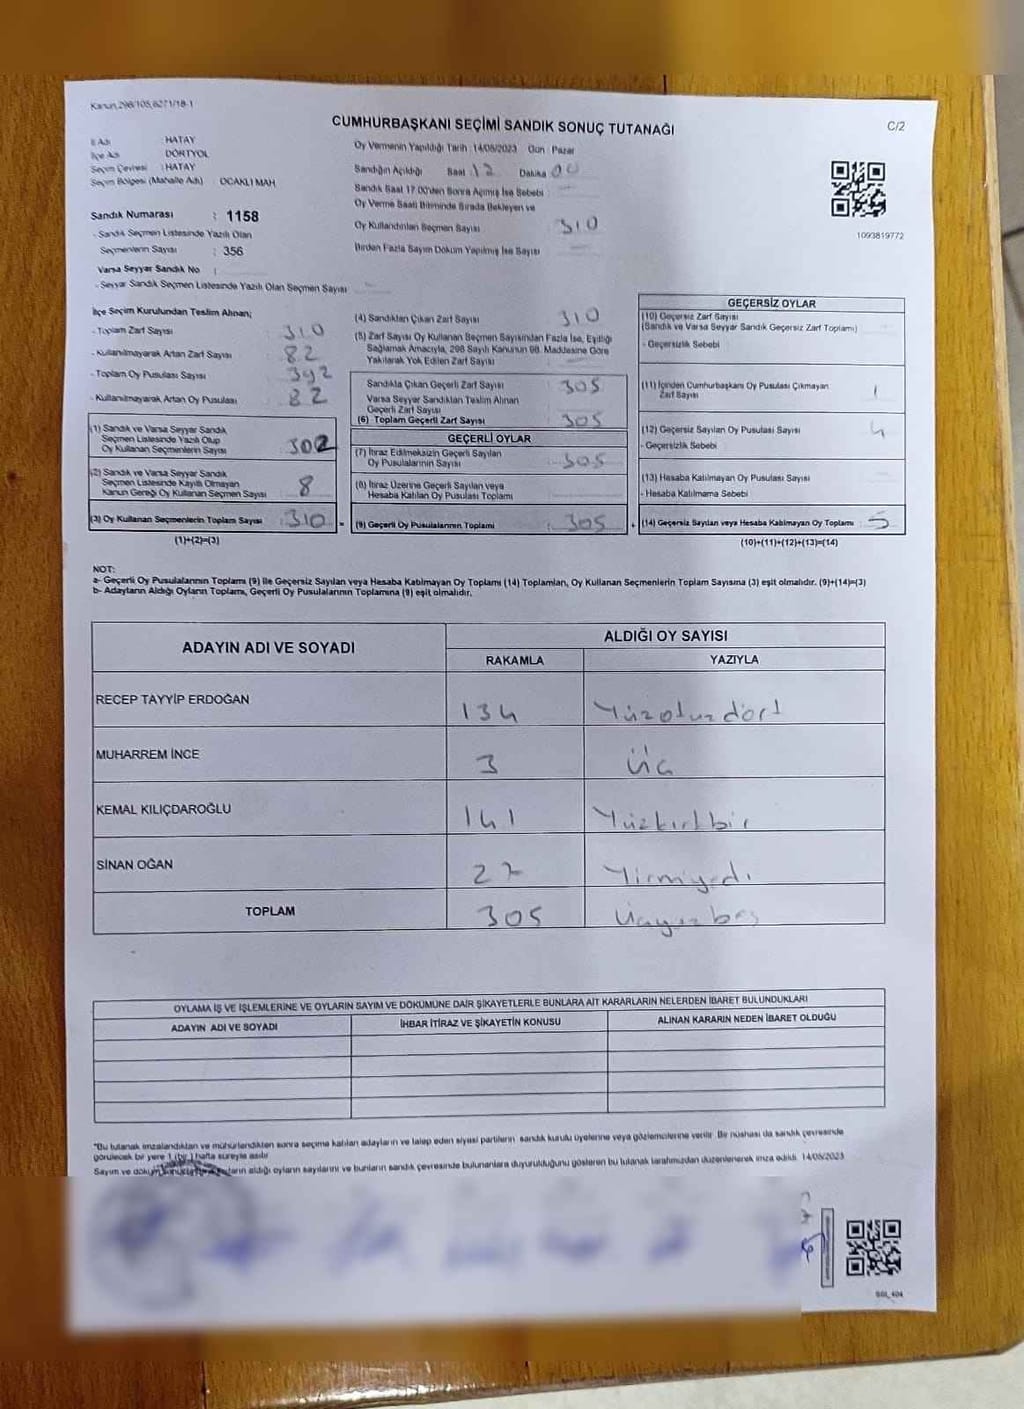 Kanun,298/105,6271/18-1
CUMHURBAŞKANI SEÇİMİ SANDIK SONUÇ TUTANAĞI
C/2
İl Adı : HATAY
İlçe Adı : DÖRTYOL
Seçim Çevresi : HATAY
Seçim Bölgesi (Mahalle Adı) : OCAKLI MAH
Sandık Numarası : 1158
- Sandık Seçmen Listesinde Yazılı Olan
Seçmenlerin Sayısı : 356
Varsa Seyyar Sandık No :
- Seyyar Sandık Seçmen Listesinde Yazılı Olan Seçmen Sayısı
Oy Vermenin Yapıldığı Tarih :14/05/2023 Gün : Pazar
Sandığın Açıldığı Saat 12 Dakika 00
Sandık Saat 17.00'den Sonra Açılmış İse Sebebi :
Oy Verme Saati Bitiminde Sırada Bekleyen ve
Oy Kullandırılan Seçmen Sayısı : 310
Birden Fazla Sayım Döküm Yapılmış İse Sayısı
1093819772
İlçe Seçim Kurulundan Teslim Alınan;
- Toplam Zarf Sayısı : 310
- Kullanılmayarak Artan Zarf Sayısı : 82
- Toplam Oy Pusulası Sayısı : 392
- Kullanılmayarak Artan Oy Pusulası : 82
(1) Sandık ve Varsa Seyyar Sandık
Seçmen Listesinde Yazılı Olup
Oy Kullanan Seçmenlerin Sayısı : 302
(2) Sandık ve Varsa Seyyar Sandık
Seçmen Listesinde Kayıtlı Olmayan
Kanun Gereği Oy Kullanan Seçmen Sayısı : 8
(3) Oy Kullanan Seçmenlerin Toplam Sayısı : 310 =
(1)+(2)=(3)
(4) Sandıktan Çıkan Zarf Sayısı : 310
(5) Zarf Sayısı Oy Kullanan Seçmen Sayısından Fazla İse, Eşitliği
Sağlamak Amacıyla, 298 Sayılı Kanunun 98. Maddesine Göre
Yakılarak Yok Edilen Zarf Sayısı :
Sandıkta Çıkan Geçerli Zarf Sayısı : 305
Varsa Seyyar Sandıktan Teslim Alınan
Geçerli Zarf Sayısı
(6) Toplam Geçerli Zarf Sayısı : 305
GEÇERLİ OYLAR
(7) İtiraz Edilmeksizin Geçerli Sayılan
Oy Pusulalarının Sayısı : 305
(8) İtiraz Üzerine Geçerli Sayılan veya
Hesaba Katılan Oy Pusulası Toplamı :
(9) Geçerli Oy Pusulalarının Toplamı : 305 +
GEÇERSİZ OYLAR
(10) Geçersiz Zarf Sayısı
(Sandık ve Varsa Seyyar Sandık Geçersiz Zarf Toplamı)
- Geçersizlik Sebebi :
(11) İçinden Cumhurbaşkanı Oy Pusulası Çıkmayan
Zarf Sayısı : 1
(12) Geçersiz Sayılan Oy Pusulası Sayısı : 4
- Geçersizlik Sebebi :
(13) Hesaba Katılmayan Oy Pusulası Sayısı :
- Hesaba Katılmama Sebebi :
(14) Geçersiz Sayılan veya Hesaba Katılmayan Oy Toplamı : 5
(10)+(11)+(12)+(13)=(14)
NOT:
a- Geçerli Oy Pusulalarının Toplamı (9) ile Geçersiz Sayılan veya Hesaba Katılmayan Oy Toplamı (14) Toplamları, Oy Kullanan Seçmenlerin Toplam Sayısına (3) eşit olmalıdır. (9)+(14)=(3)
b- Adayların Aldığı Oyların Toplamı, Geçerli Oy Pusulalarının Toplamına (9) eşit olmalıdır.
ADAYIN ADI VE SOYADI
ALDIĞI OY SAYISI
RAKAMLA YAZIYLA
RECEP TAYYİP ERDOĞAN 134 Yüzotuzdört
MUHARREM İNCE 3 Üç
KEMAL KILIÇDAROĞLU 141 Yüzkırkbir
SİNAN OĞAN 27 Yirmiyedi
TOPLAM 305 Üçyüzbeş
OYLAMA İŞ VE İŞLEMLERİNE VE OYLARIN SAYIM VE DÖKÜMÜNE DAİR ŞİKAYETLERLE BUNLARA AİT KARARLARIN NELERDEN İBARET BULUNDUKLARI
ADAYIN ADI VE SOYADI İHBAR İTİRAZ VE ŞİKAYETİN KONUSU ALINAN KARARIN NEDEN İBARET OLDUĞU
"Bu tutanak imzalandıktan ve mühürlendikten sonra seçime katılan adayların ve talep eden siyasi partilerin sandık kurulu üyelerine veya gözlemcilerine verilir. Bir nüshası da sandık çevresinde
görülecek bir yere 1 (bir ) hafta süreyle asılır.
Sayım ve döküm aldığı oyların sayılarını ve bunların sandık çevresinde bulunanlara duyurulduğunu gösteren bu tutanak tarafımızdan düzenlenerek imza edildi. 14/05/2023